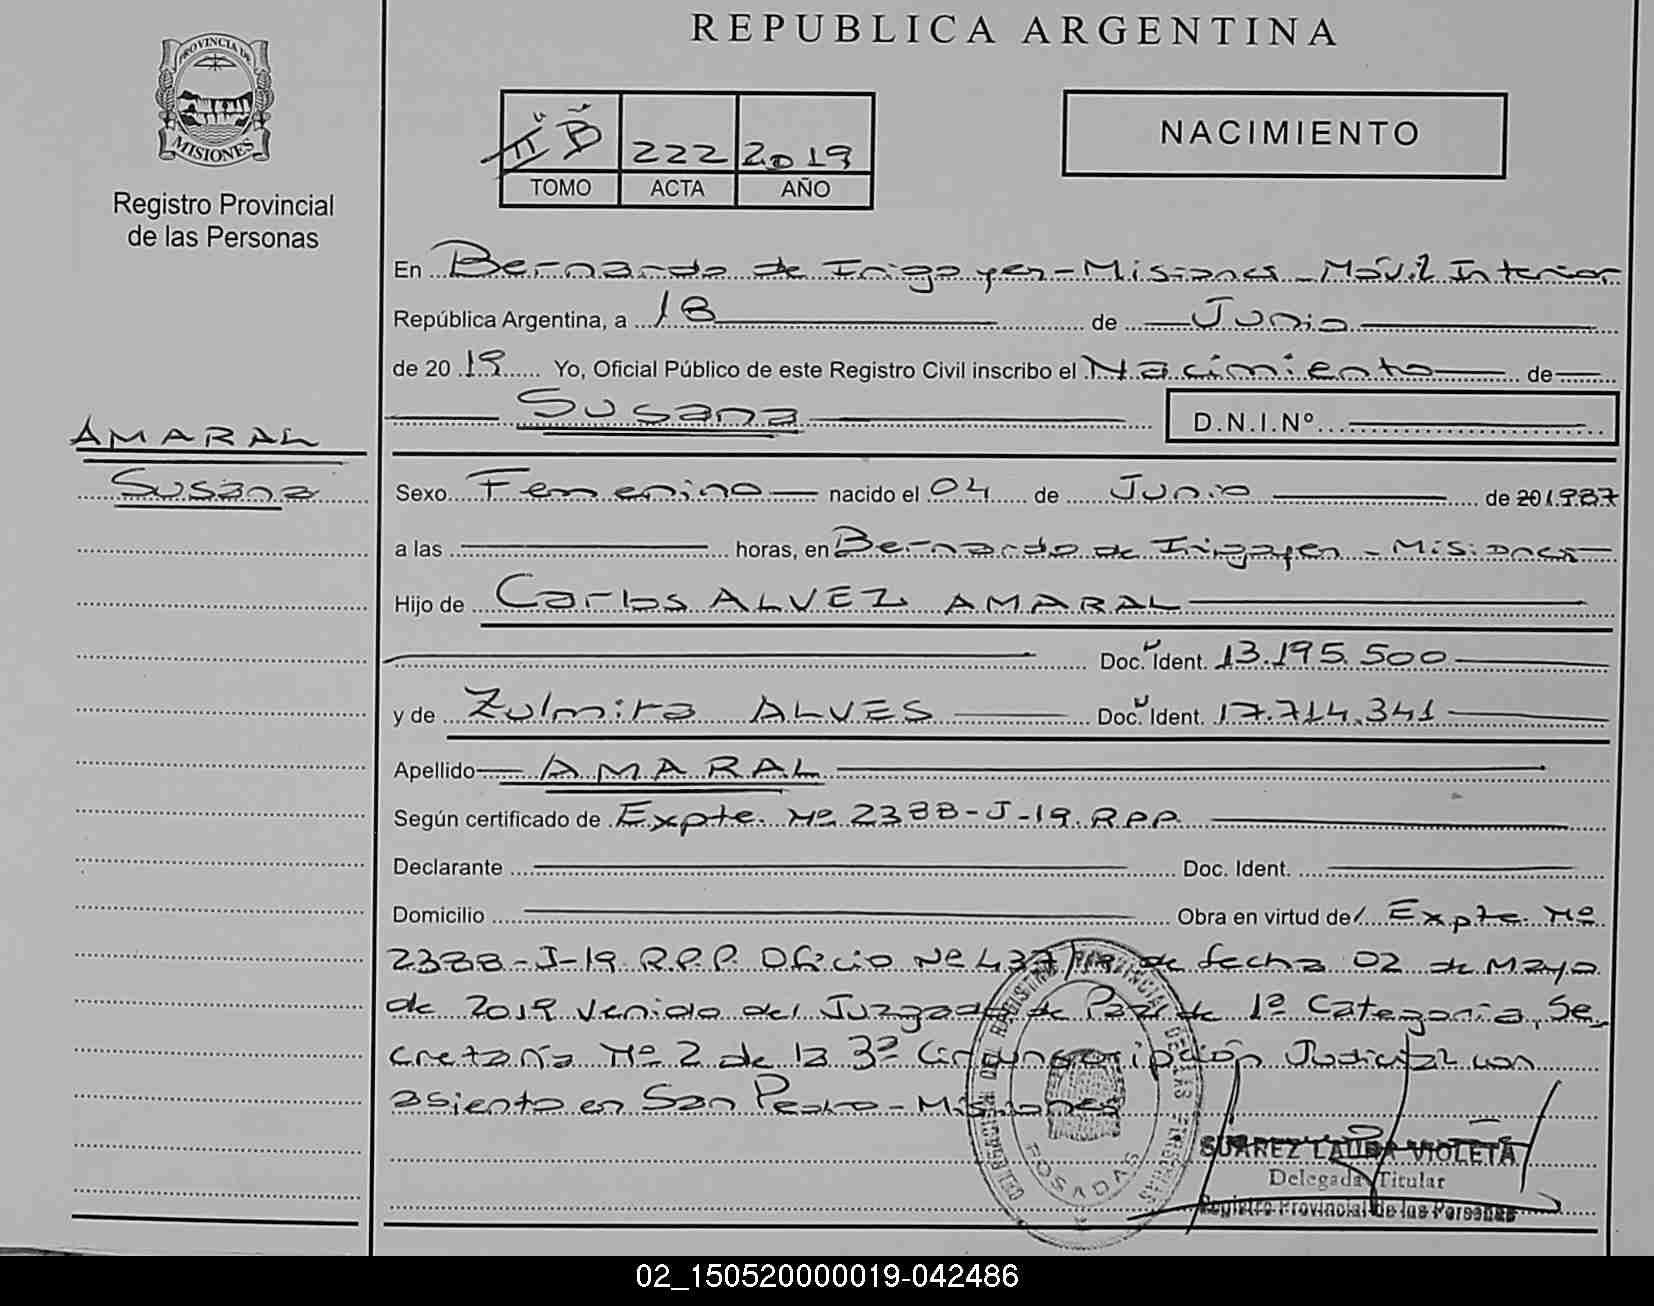 REPUBLICA ARGENTINA
PROVINCIA DE
MISIONES
Registro Provincial
de las Personas
III B 222 2019
TOMO ACTA AÑO
NACIMIENTO
En Bernardo de Irigoyen - Misiones - Móvil Interior
República Argentina, a 18 de Junio
de 2019 Yo, Oficial Público de este Registro Civil inscribo el Nacimiento de
Susana D.N.I.Nº
AMARAL
Susana
Sexo Femenino nacido el 04 de Junio de 201987
a las horas, en Bernardo de Irigoyen - Misiones
Hijo de Carlos ALVEZ AMARAL
Doc. Ident. 13.195.500
y de Zulmira ALVES Doc. Ident. 17.714.341
Apellido AMARAL
Según certificado de Expte. Nº 2388-J-19. R.P.P.
Declarante Doc. Ident.
Domicilio Obra en virtud de Expte. Nº
2388-J-19 R.P.P. Oficio Nº 437/19 de fecha 02 de Mayo
de 2019 venido del Juzgado de Paz de 1ª Categoria, Se
cretaría Nº 2 de la 3ª Circunscripción Judicial con
asiento en San Pedro - Misiones
POSADAS
SUAREZ LAURA VIOLETA
Delegada Titular
Registro Provincial de las Personas
02_150520000019-042486